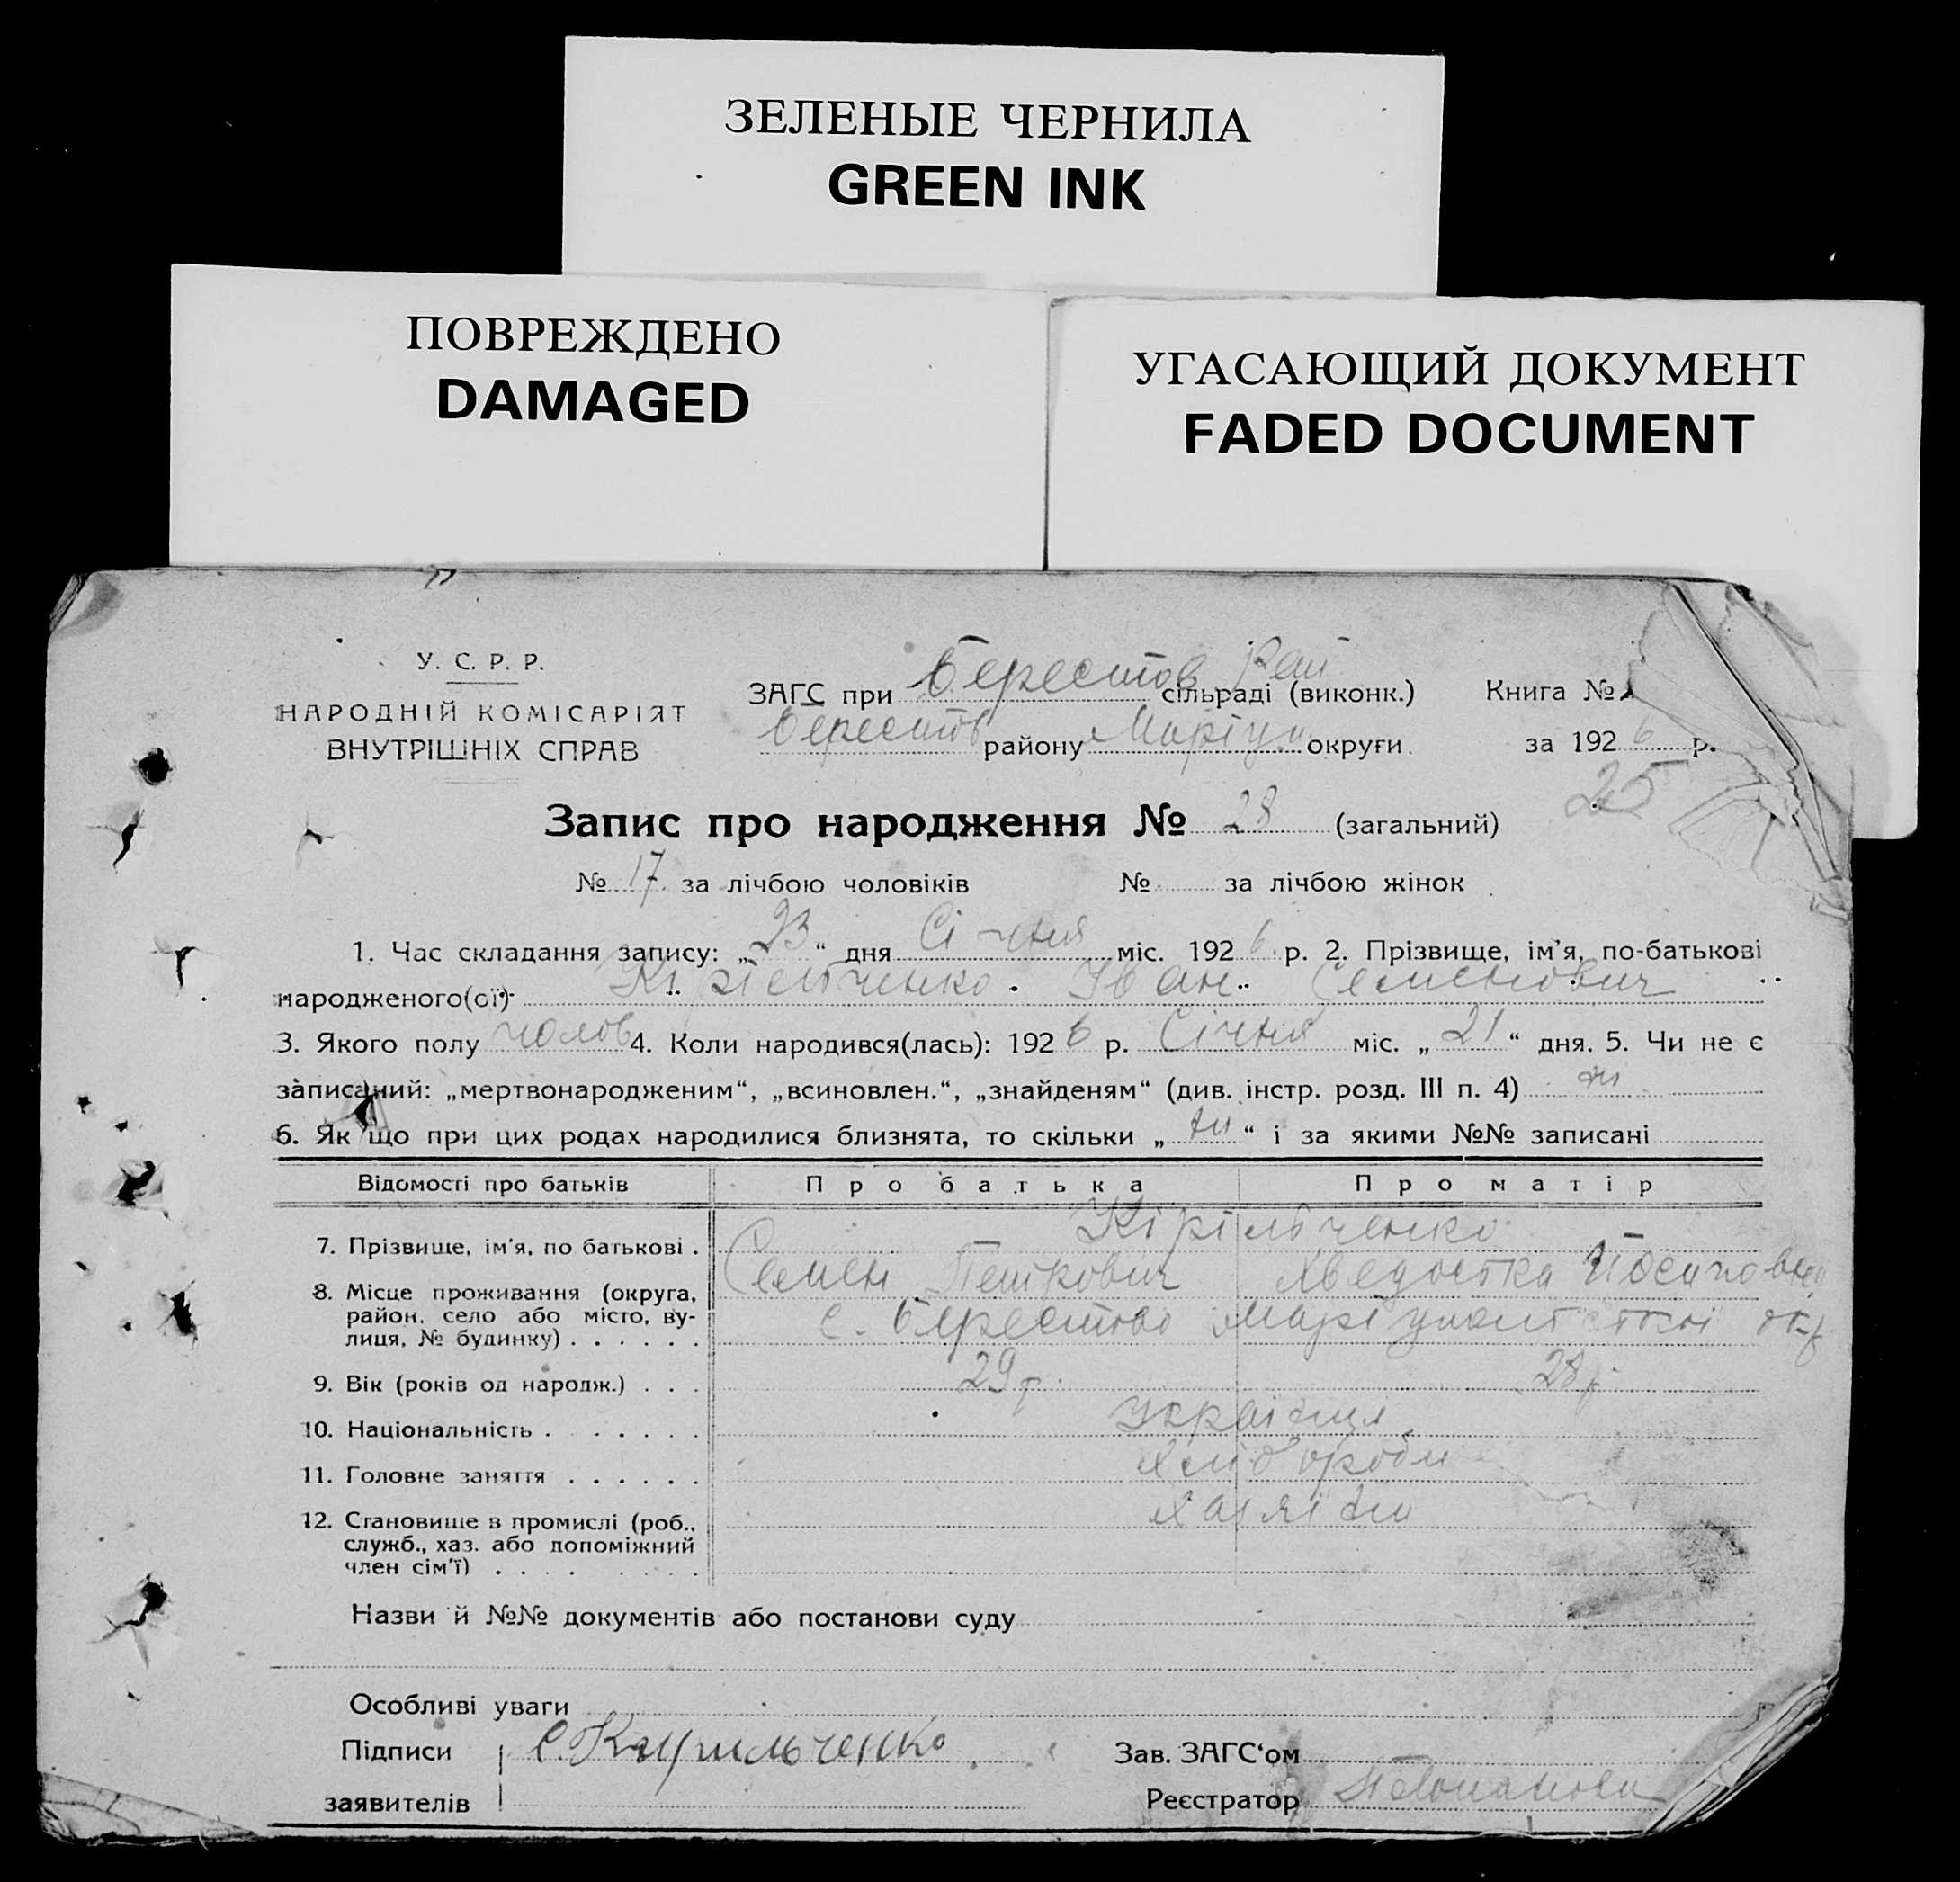 ЗЕЛЕНЫЕ ЧЕРНИЛА
GREEN INK
ПОВРЕЖДЕНО
DAMAGED
УГАСАЮЩИЙ ДОКУМЕНТ
FADED DOCUMENT
У. С. Р. Р.
НАРОДНІЙ КОМІСАРІЯТ
ВНУТРІШНІХ СПРАВ
ЗАГС при Берестов Рай сільраді (виконк.)
Берестов району Маріуп округи
Книга №
за 1926 р.
25
Запис про народження № 28 (загальний)
№ 17 за лічбою чоловіків № за лічбою жінок
1. Час складання запису: „23“ дня Січня міс. 1926 р. 2. Прізвище, ім'я, по-батькові
народженого(ої) Кірільченко Іван Семенович
3. Якого полу чолов 4. Коли народився(лась): 1926 р. Січня міс. „21“ дня. 5. Чи не є
записаний: „мертвонародженим“, „всиновлен.“, „знайденям“ (див. інстр. розд. III п. 4) ні
6. Як що при цих родах народилися близнята, то скільки „ні“ і за якими №№ записані
Відомості про батьків Про батька Про матір
7. Прізвище, ім'я, по батькові . Кірільченко
Семен Петрович
8. Місце проживання (округа,
район, село або місто, ву-
лиця, № будинку) . . . . . . с. Берестово Маріупольської окр
9. Вік (років од народж.) . . . 29 р. 28 р.
10. Національність . . . . . . . Українці
11. Головне заняття . . . . . . Хлібороби
12. Становище в промислі (роб.,
служб., хаз. або допоміжний
член сім'ї) . . . . . . . . Хазяїни
Назви й №№ документів або постанови суду
Особливі уваги
Підписи С. Кирильченко Зав. ЗАГС‘ом
заявителів Реєстратор